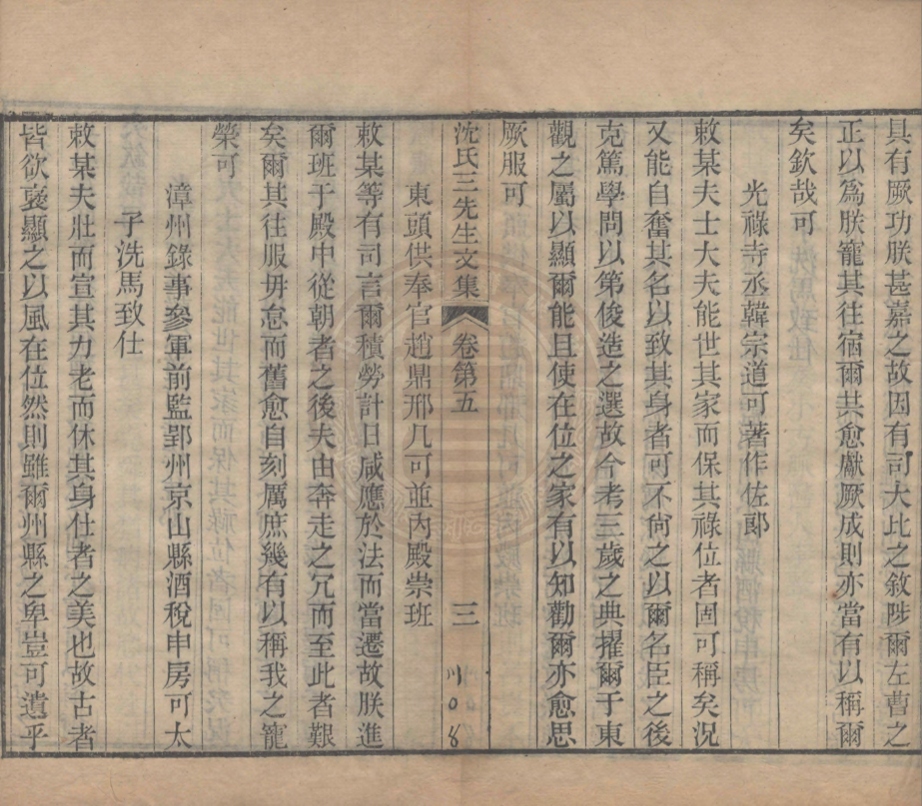 具有厥功朕甚嘉之故因有司大比之敘陟爾左曹之
正以為朕寵其往宿爾其愈獻厥成則亦當有以稱爾
矣欽哉可
光祿寺丞韓宗道可著作佐郎
敕某夫士大夫能世其家而保其祿位者固可稱矣況
又能自奮其名以致其身者可不尙之以爾名臣之後
克篤學問以第俊造之選故今考三歲之典擢爾于東
觀之屬以顯爾能且使在位之家有以知勸爾亦愈思
厥服可
沈氏三先生文集 卷第五 三 108
東頭供奉官趙鼎邢几可並內殿崇班
敕某等有司言爾積勞計日咸應於法而當遷故朕進
爾班于殿中從朝者之後夫由奔走之冗而至此者艱
矣爾其往服毋怠而舊愈自刻厲庶幾有以稱我之寵
榮可
漳州錄事參軍前監郢州京山縣酒稅申房可太
子洗馬致仕
敕某夫壯而宣其力老而休其身仕者之美也故古者
皆欲褒顯之以風在位然則雖爾州縣之卑豈可遺乎